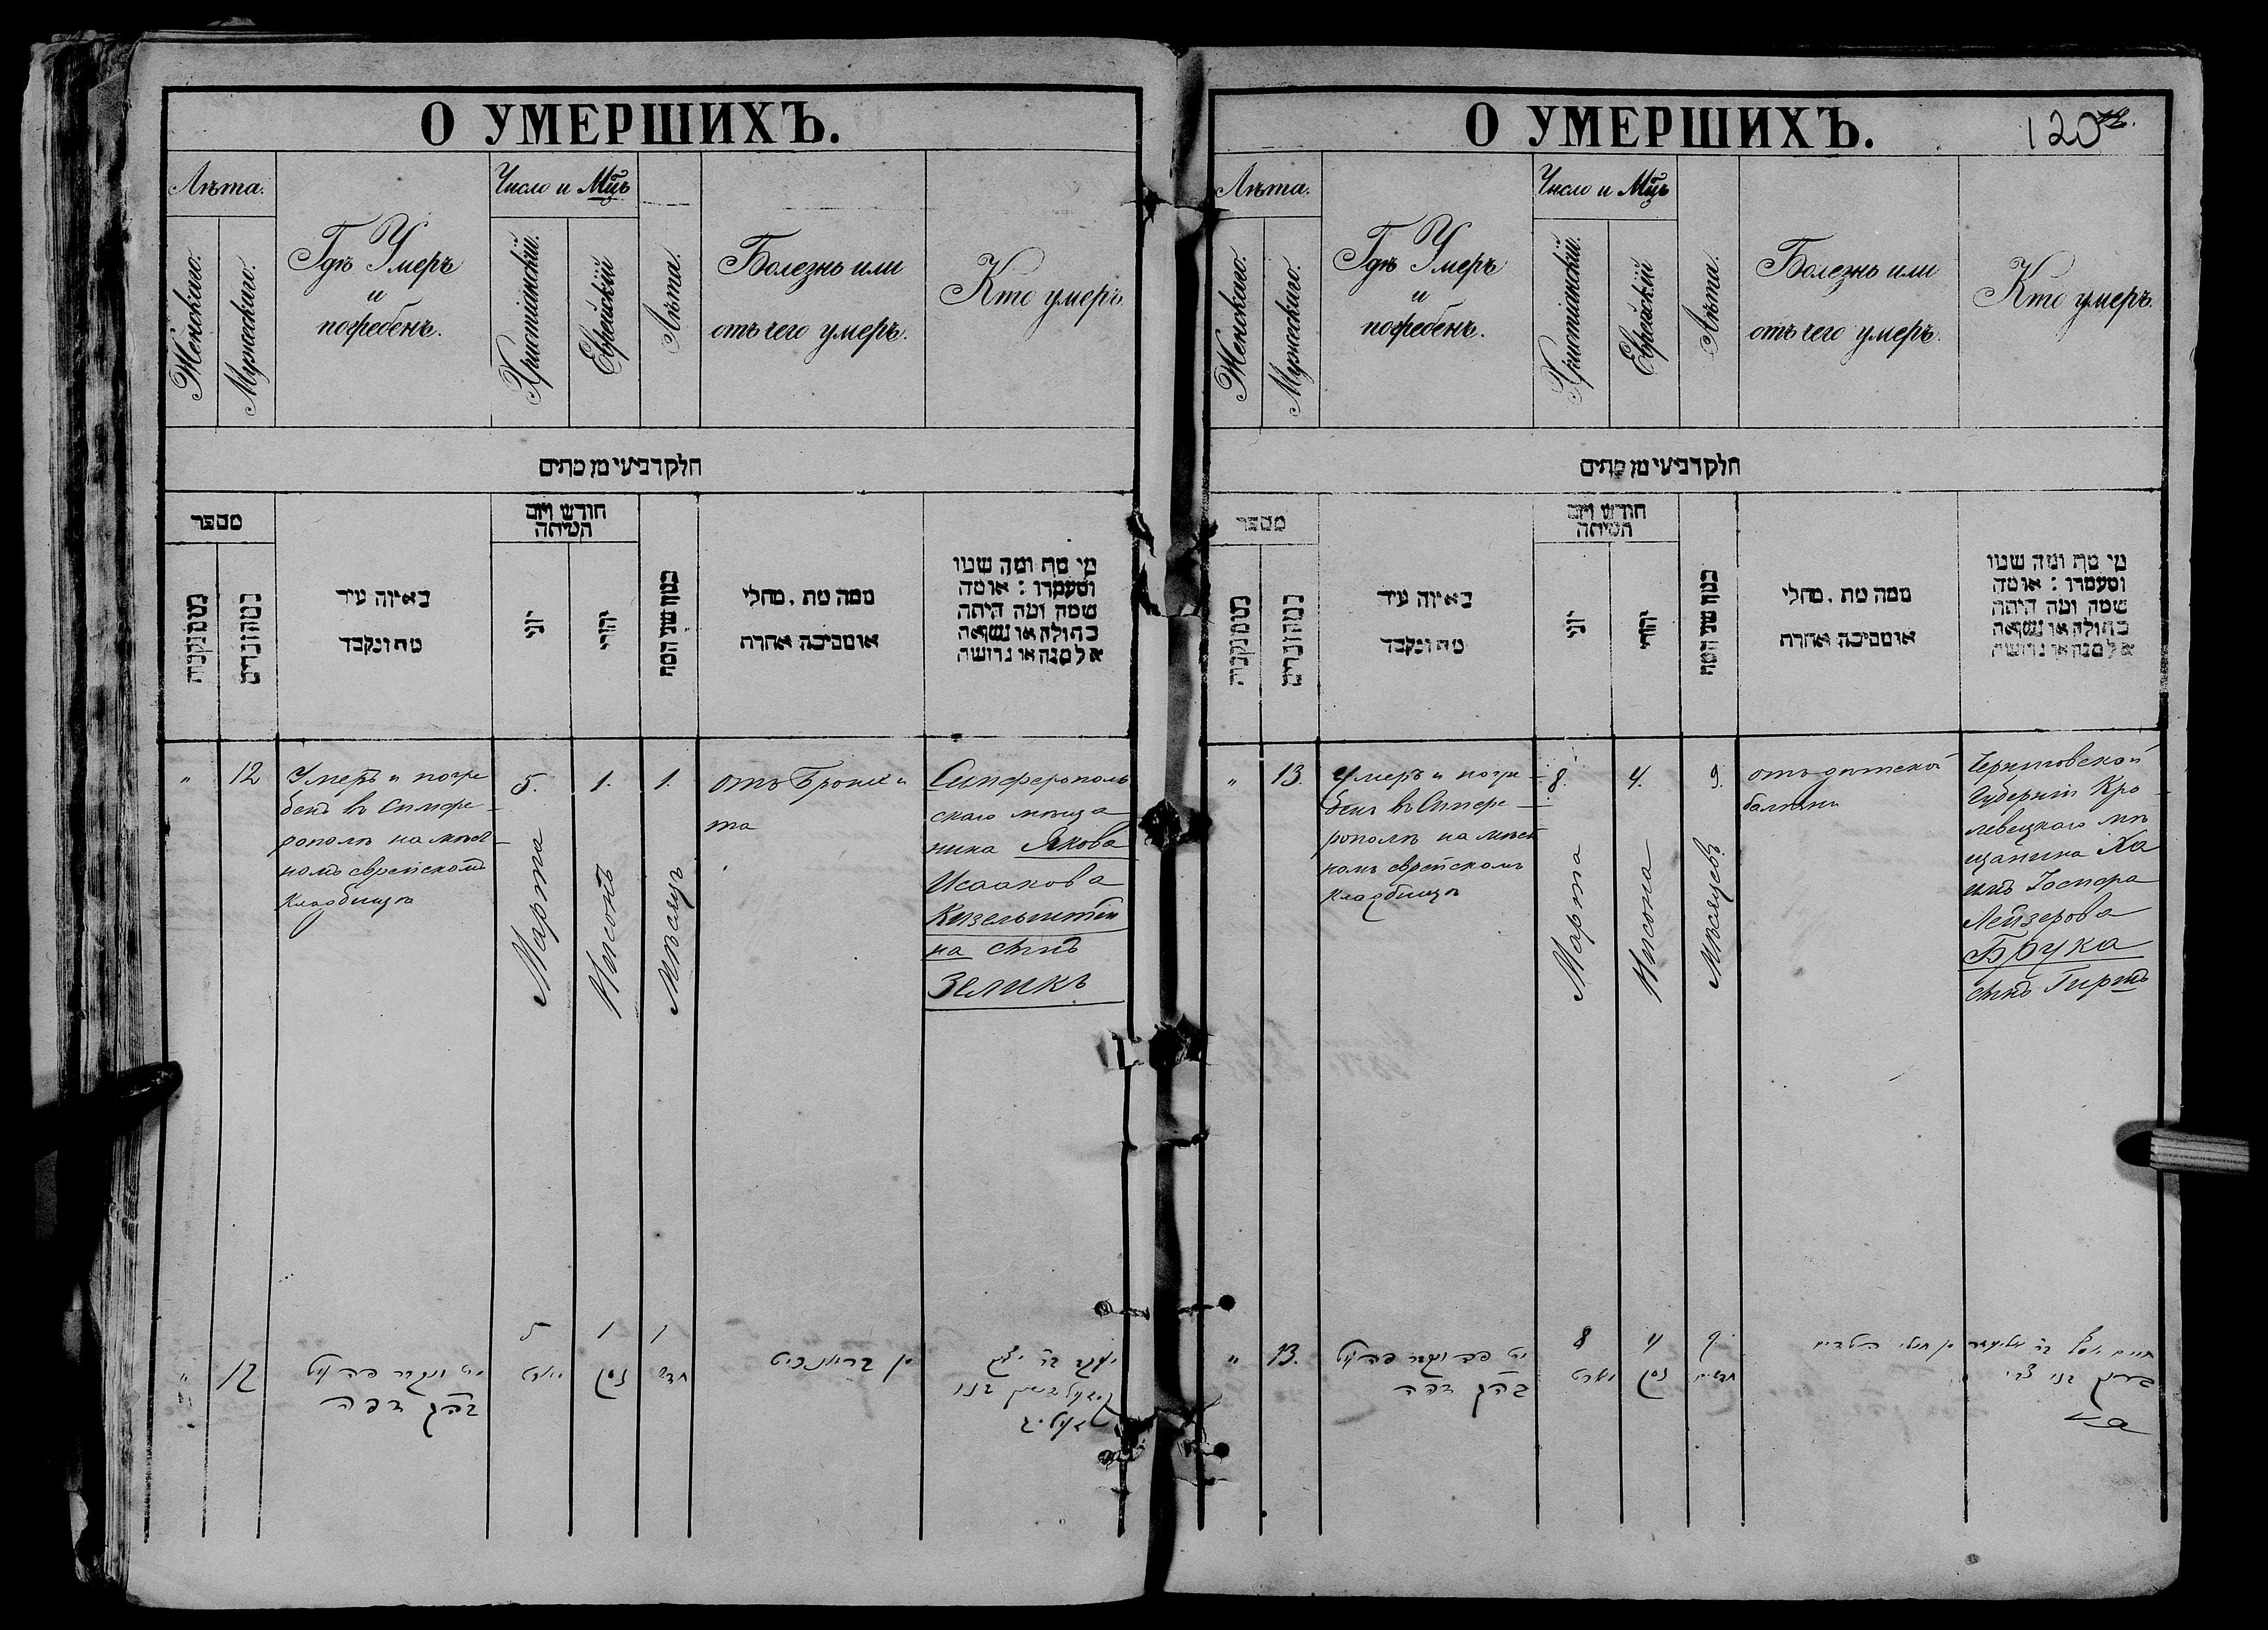 О УМЕРШИХЪ.
Лѣта.
Женскаго.
Мужескаго.
Гдѣ Умеръ
и
погребенъ.
Число и Мц̃ъ
Христіанскій.
Еврейскій
Лѣта.
Болезнь или
отъ чего умеръ.
Кто умеръ.
חלק רביעי מן מתים
מספר
באיזה עיר
מת ונקבר
חודש ויום
המיתה
יוני
יהודי
ממה מת, מחלי
או מסיבה אחרת
מי מת ומה שמו
ומעמדו : או מה
שמה ומה היתה
בתולה או נשואה
אלמנה או גרושה
"
12
Умеръ и погре
бенъ въ Симфе-
рополѣ на мѣст-
номъ еврейскомъ
Кладбищѣ
5.
Марта
1.
Нисонъ
1.
Мѣсяцъ
отъ Бронхи
та
Симферополь
скаго мѣща
нина Якова
Исаакова
Кизельштей
на сынъ
Зеликъ
"
12
5
1
1
מארט
ניסן
חדש
О УМЕРШИХЪ.
120
Лѣта.
Женскаго.
Мужескаго.
Гдѣ Умеръ
и
погребенъ.
Число и Мц̃ъ
Христіанскій.
Еврейскій
Лѣта.
Болезнь или
отъ чего умеръ.
Кто умеръ.
חלק רביעי מן מתים
מספר
באיזה עיר
מת ונקבר
חודש ויום
המיתה
יוני
יהודי
ממה מת, מחלי
או מסיבה אחרת
מי מת ומה שמו
ומעמדו : או מה
שמה ומה היתה
בתולה או נשואה
אלמנה או גרושה
"
13.
Умеръ и погре-
бенъ въ Симфе-
рополѣ на мѣст
номъ еврейскомъ
Кладбищѣ
8.
Марта
4.
Нисона
9.
Мѣсяцевъ
отъ дѣтской
балѣзни
Черниговской
Губерніи Кро-
левецкаго мѣ
щанина Ха
имъ Іосифа
Лейзерова
Брука
сынъ Гиршъ
"
13.
8
4
9
מארט
ניסן
חדשים